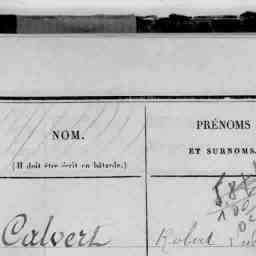 NOM.
(Il doit être écrit en bâtarde.)
PRÉNOMS
ET SURNOMS.
Calvert
Robert